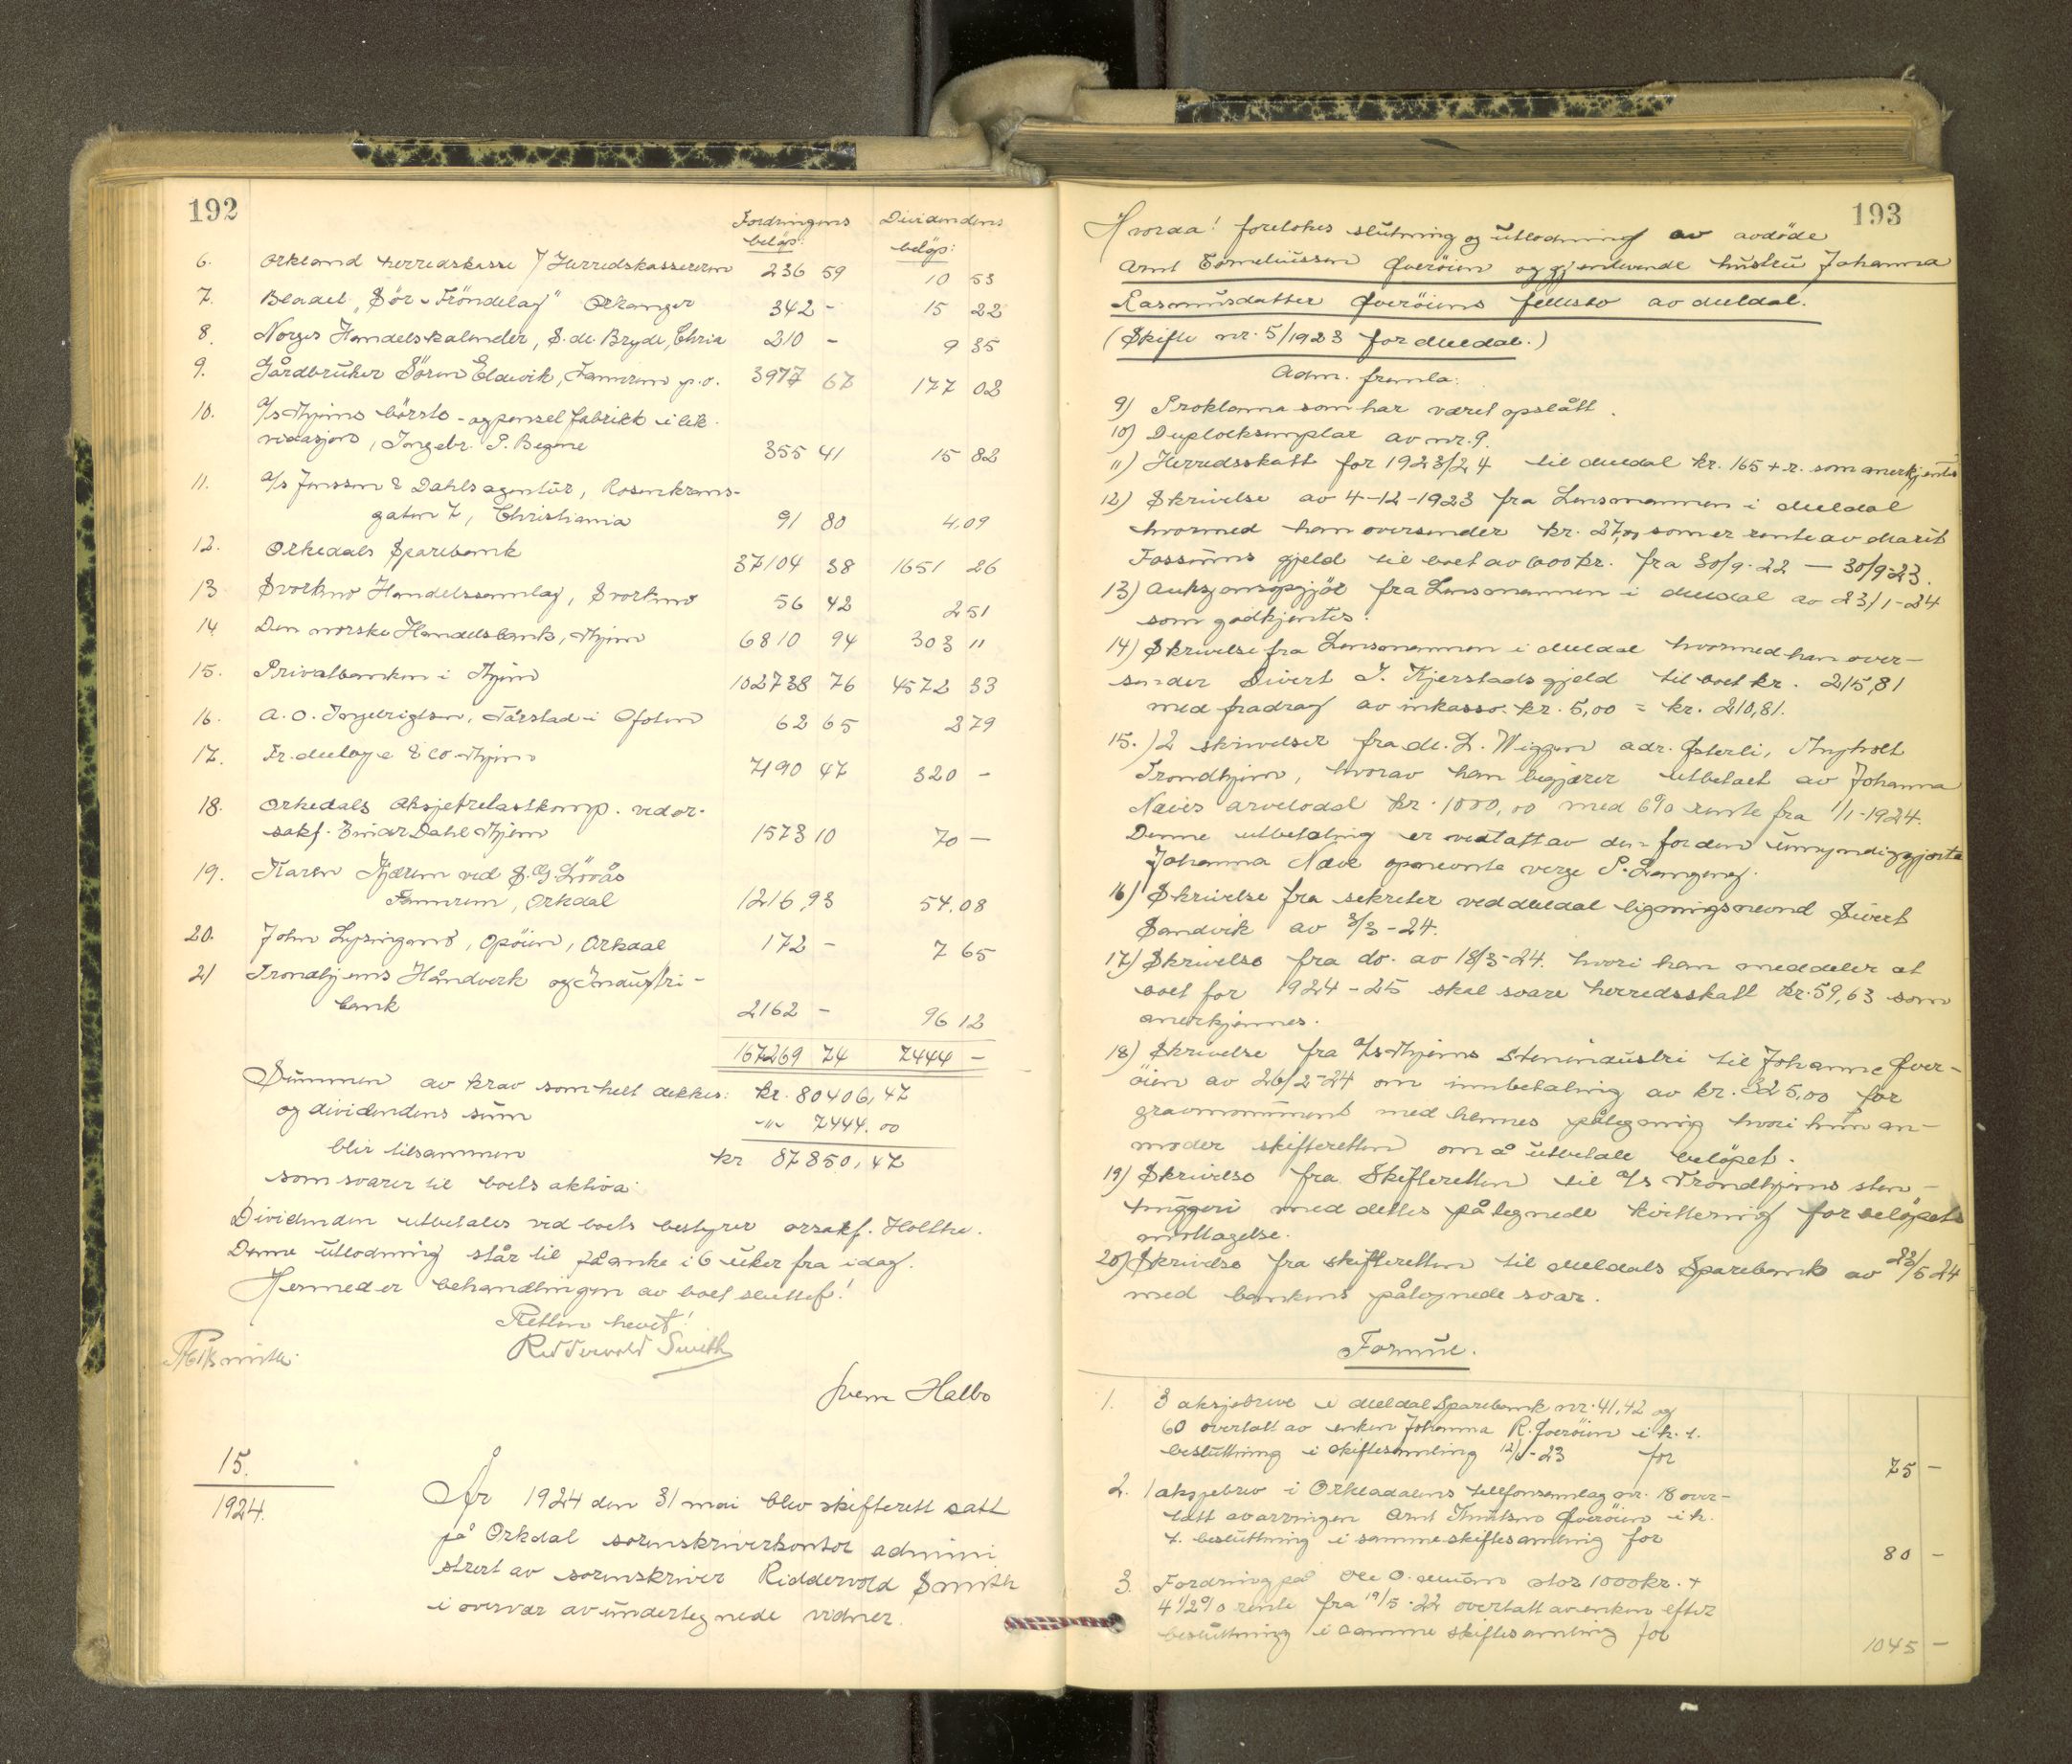 192
Fordringens Dividendens
beløp: beløp:
6. Orkland herredskasse / Herredskassereren 236 59 10 53
7. Bladet "Sör-Tröndelag" Orkanger 342 - 15 22
8. Norges Handelskalender, S. de Bryde, Chria 210 - 9 35
9. Gårdbruker Sören Eldevik, Fannrem p.o. 3977 67 177 02
10. A/s Thjems börste- og pensel fabrikk i lik-
vidasjon, Ingebr. P. Begme 355 41 15 82
11. A/s Jenssen & Dahls agentur, Rosenkrans-
gaten 7, Christiania 91 80 4,09
12. Orkedals Sparebank 37104 38 1651 26
13. Svorkmo Handelssamlag, Svorkmo 56 42 2 51
14. Den norske Handelsbank, Thjem 6810 94 303 "
15. Privatbanken i Thjem 102738 76 4572 33
16. A. O. Ingebrigtsen, Tårstad i Ofoten 62 65 2 79
17. Fr. & Co Thjem 7190 47 320 -
18. Orkedals Aksjetrelastkomp. ved or-
sakf. Einar Dahl Thjem 1573 10 70 -
19. Karen Kjærem ved S. G. Lööås
Fannrem, Orkdal 1216,93 54,08
20. John Lysingmo, Opöien, Orkdal 172 - 7 65
21 Trondhjems Håndverk og Industri-
bank 2162 - 96 12
167269 74 7444 -
Summen av krav som helt dekkes: kr. 80406,47
og dividendens sum -"- 7444.00
blir tilsammen kr 87850,47
som svarer til boets aktiva
Dividenden utbetales ved boets bestyrer orsakf. Holthe.
Denne utlodning står til påanke i 6 uker fra idag.
Hermed er behandlingen av boet sluttet!
Retten hevet!
Riddervold Smith
Svem Halbo
15.
1924.
År 1924 den 31 mai blev skifterett satt
på Orkdal sorenskriverkontor admini
strert av sorenskriver Riddervold Smith
i overvær av undertegnede vidner.
193
Hvorda! foretokes slutning og utlodning av avdöde
Arnt Corneliussen Överöien og gjenlevende hustru Johanna
Rasmusdatter Överöiens fellesbo av Meldal.
(Skifte nr. 5/1923 for Meldal.)
Adm. fremla:
9) Proklama som har været opslått.
10) Duploeksemplar av nr. 9.
11) Herredsskatt for 1923/24 til Meldal kr. 165 + r. som anerkjentes
12) Skrivelse av 4-12-1923 fra Lensmannen i Meldal
hvormed han oversender kr. 27,00 som er rente av Marit
Fossums gjeld til boet av 600 kr. fra 30/9-22 — 30/9-23.
13) Auksjonsopgjör fra Lensmannen i Meldal av 23/1-24
som godkjentes.
14) Skrivelse fra Lensmannen i Meldal hvormed han over-
sender Sivert J. Kjerstads gjeld til boet kr. 215,81
med fradrag av inkasso. kr. 5,00 = kr. 210,81.
15.) 2 skrivelser fra M. L. Wiggen adr. Østerli, Thyholt
Trondhjem, hvorav han begjærer utbetalt av Johanna
Næves arvelodd kr. 1000,00 med 6% rente fra 1/1-1924.
Denne utbetaling er vedtatt av den for den umyndiggjorte
Johanna Næve opnevnte verge P. Langeng.
16) Skrivelse fra sekretær ved Meldal ligningsnevnd Sivert
Sandvik av 3/3-24.
17) Skrivelse fra do. av 18/3-24. hvori han meddeler at
boet for 1924-25 skal svare herredsskatt kr. 59,63 som
anerkjennes.
18) Skrivelse fra A/s Thjems Stenindustri til Johanne Över-
öien av 26/2-24 om innbetaling av kr. 325,00 for
gravmonument med hennes påtegning hvori hun an-
moder skifteretten om å utbetale belöpet.
19) Skrivelse fra Skifteretten til A/s Trondhjems sten-
huggeri med dettes påtegnede kvittering for belöpets
mottagelse.
20) Skrivelse fra skifteretten til Meldals Sparebank av 23/5-24
med bankens påtegnede svar.
Formue.
1. 3 aksjebreve i Meldal Sparebank nr. 41, 42 og
60 overtatt av enken Johanna R. Överöien i h. t.
besluttning i skiftesamling 12/6-23 for 75 -
2. 1 aksjebrev i Orkladalens telefonsamlag nr. 18 over-
tatt av arvingen Arnt Knutsen Överöien i h.
t. besluttning i samme skiftesamling for 80 -
3. Fordring på Ole O. stor 1000 kr. +
4 1/2% rente fra 19/5-22 overtatt av enken efter
besluttning i samme skiftesamling for 1045 -